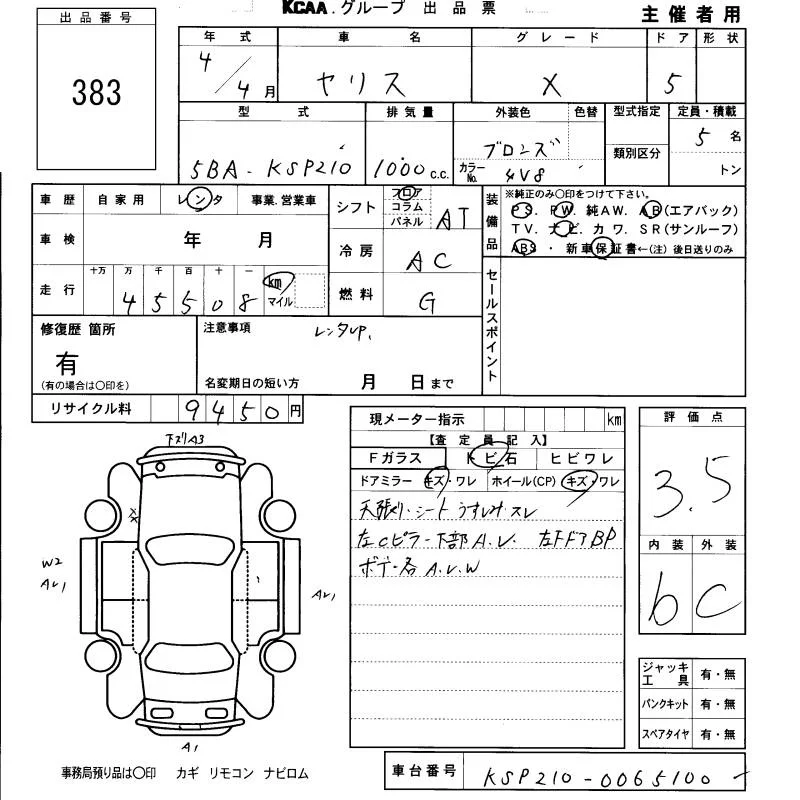 KCAA.グループ 出品票
主催者用
出品番号
383
年式 車名 グレード ドア 形状
4/4月 ヤリス X 5
型式 排気量 外装色 色替 型式指定 定員・積載
5BA-KSP210 1000 c.c. ブロンズ カラーNo. 4V8 類別区分 5名
トン
車歴 自家用 レンタ 事業.営業車
車検 年 月
走行 十万 万 千 百 十 一
45508 km マイル
シフト フロア コラム パネル AT
冷房 AC
燃料 G
装備品
※純正のみ○印をつけて下さい。
PS. PW. 純AW. AB(エアバック)
TV. ナビ. カワ. SR(サンルーフ)
ABS ・ 新車保証書←(注) 後日送りのみ
セールスポイント
修復歴 箇所
有
(有の場合は○印を)
注意事項 レンタUP.
名変期日の短い方 月 日まで
リサイクル料 9450円
現メーター指示 km
【査定員記入】
Fガラス トビ石 ヒビワレ
ドアミラー キズ・ワレ ホイール(CP) キズ・ワレ
天張り・シートうすしみ・スレ
左Cピラー下部A.U. 左FドアBP
ボデー各A.U.W
評価点
3.5
内装 外装
b C
ジャッキ工具 有・無
パンクキット 有・無
スペアタイヤ 有・無
下ズリA3
W2
AU1
AU1
A1
事務局預り品は○印 カギ リモコン ナビロム
車台番号 KSP210-0065100